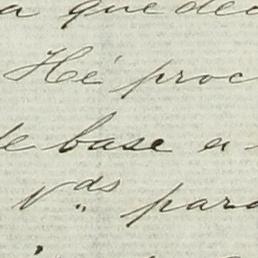 a que dec
Hé proc
de base a
Vds para